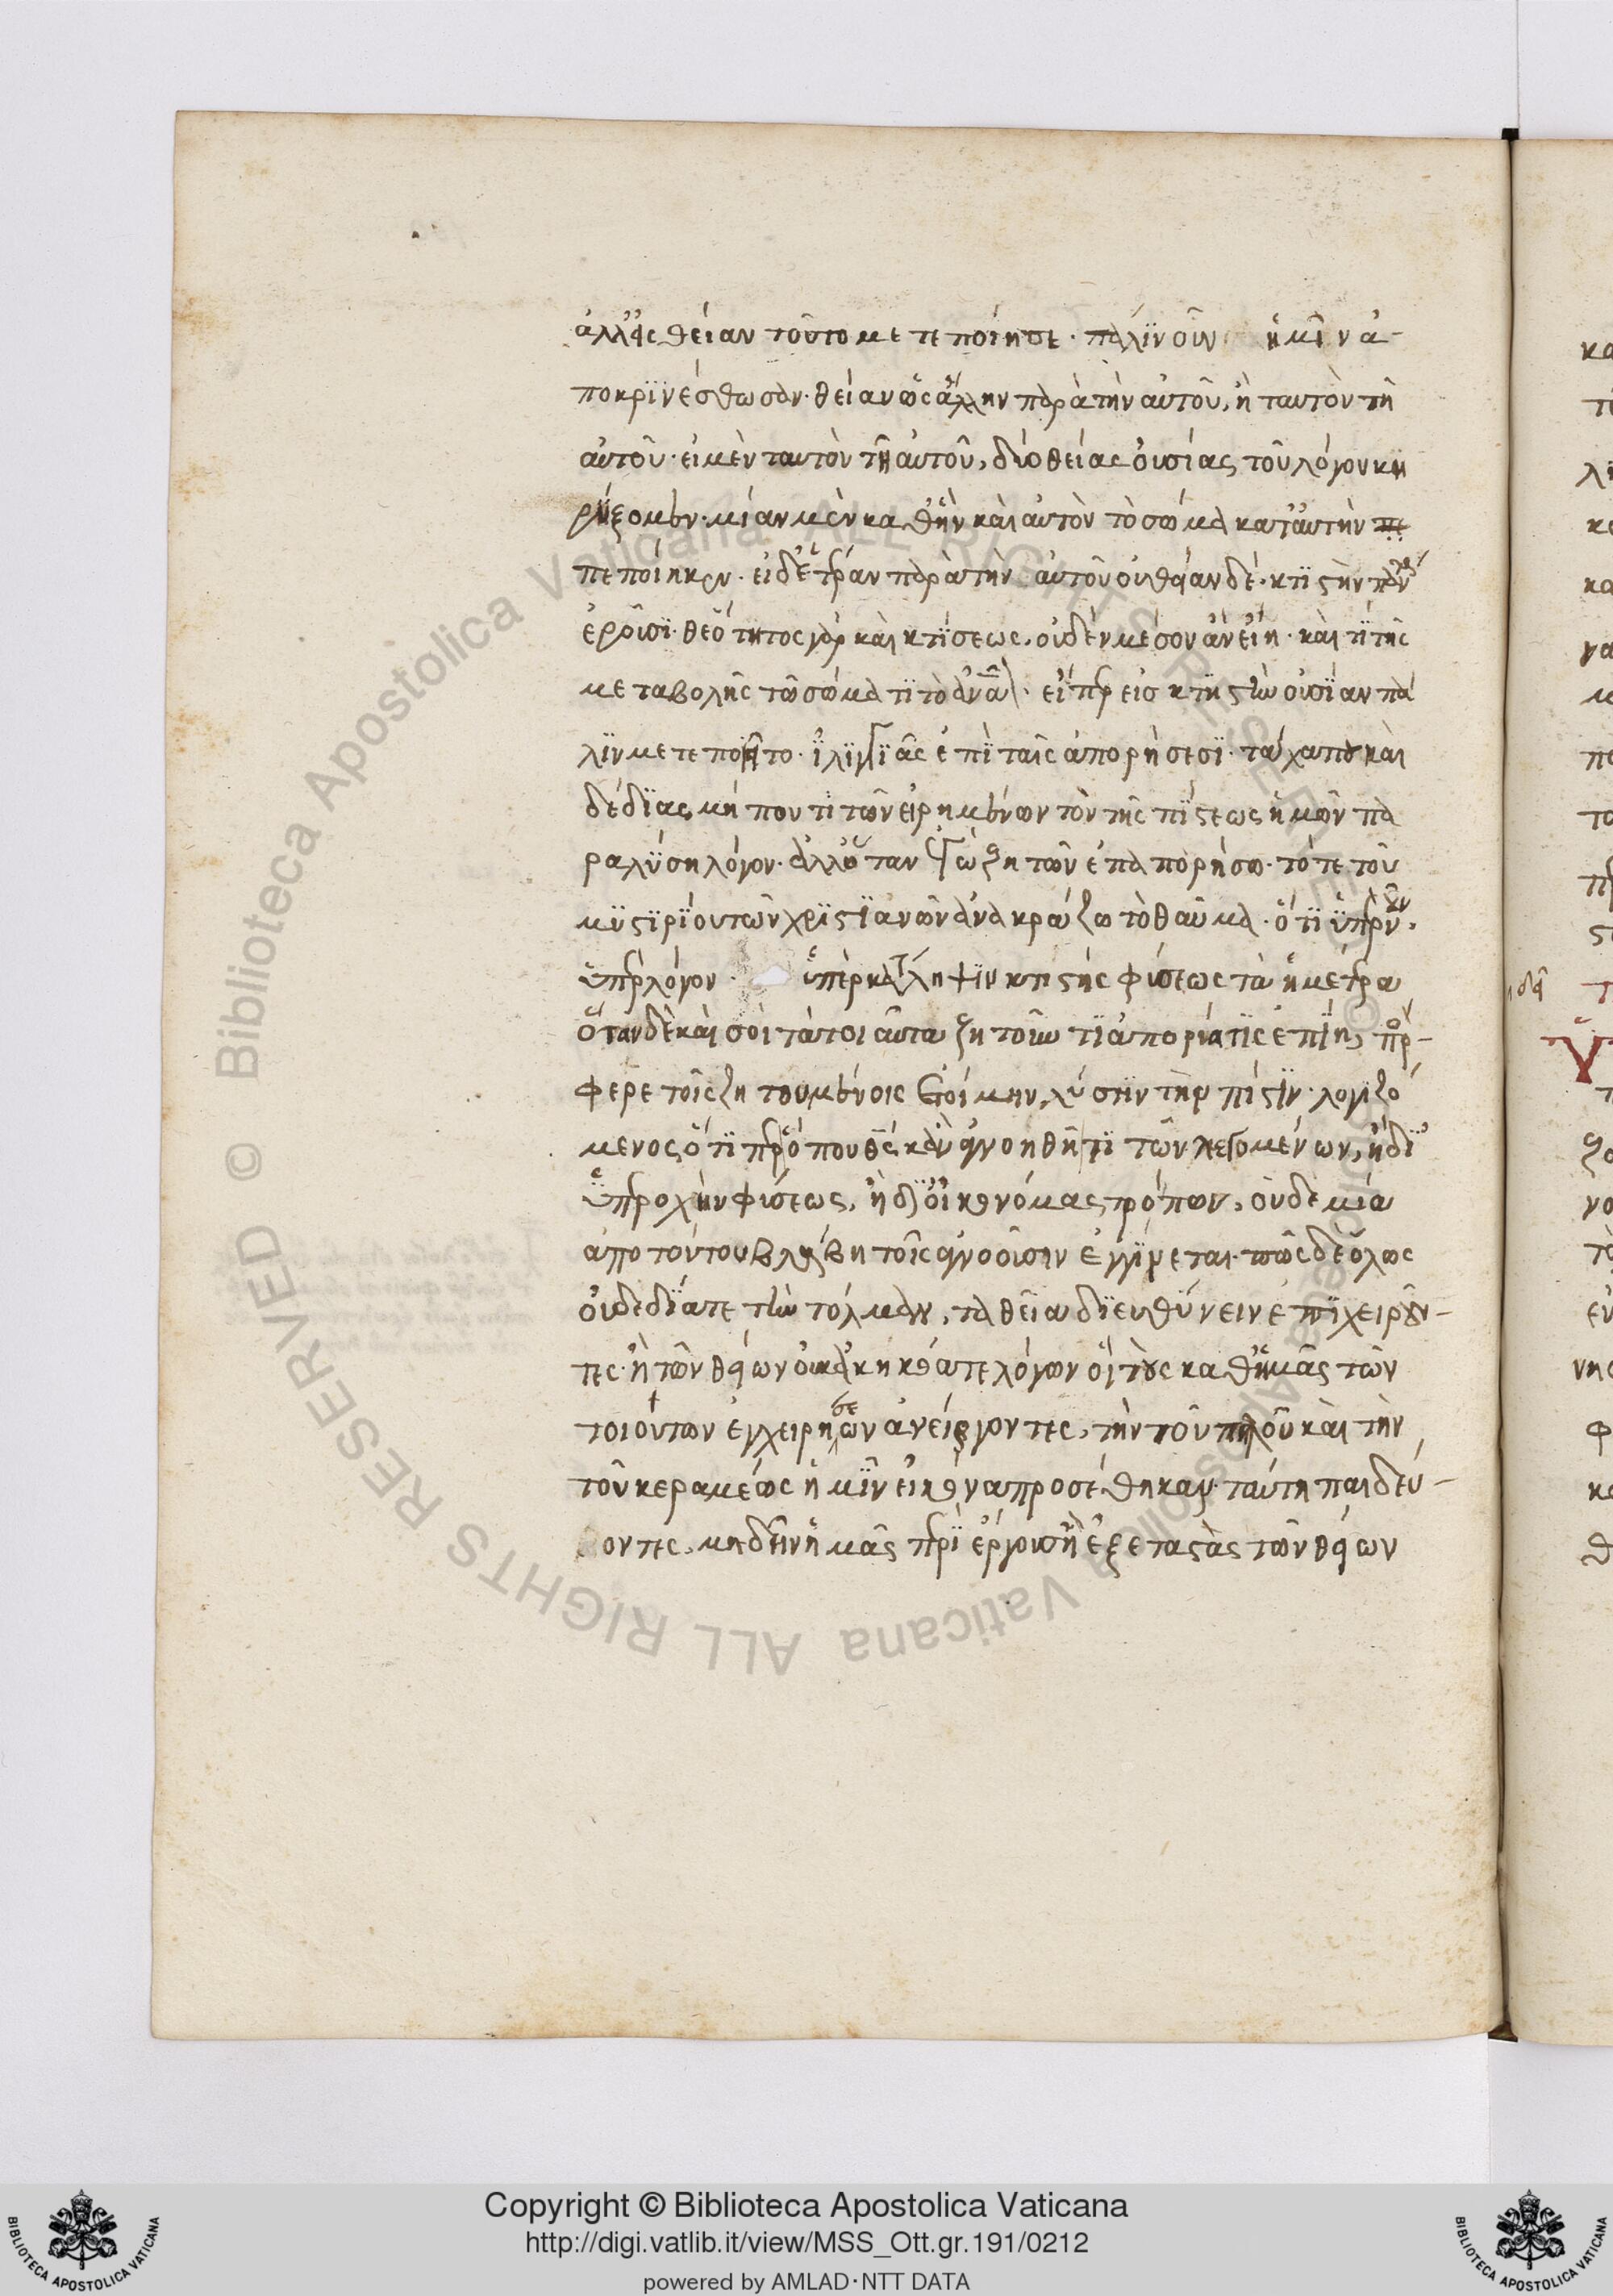 ἀλλ' εἰς θείαν τοῦτο μετεποίησε· πάλιν οὖν ἡμῖν ἀ-
ποκρινέσθωσαν· θείαν ὡς ἄλλην παρὰ τὴν αὐτοῦ, ἢ ταυτὸν τῆ
αὐτοῦ· εἰ μὲν ταυτὸν τῆ αὐτοῦ, δύο θείας οὐσίας τοῦ λόγου κη
ρύξομεν· μίαν μὲν καθ' ἣν καὶ αὐτὸν τὸ σῶμα κατ' αὐτὴν
πεποίηκεν· εἰ δ' ἑτέραν παρὰ τὴν αὐτοῦ οὐ θείαν δέ· κτιστὴν
ἐροῦσι· θεότητος γὰρ καὶ κτίσεως, οὐδὲν μέσον ἂν εἴη· καὶ τί τῆς
μεταβολῆς τῶ σώματι τὸ εἴπερ εἰς κτιστὴν οὐσίαν πά
λιν μετεποιεῖτο· ἰλιγγιᾶς ἐπὶ ταῖς ἀπορήσεσι· τάχα που καὶ
δέδιας μή που τι τῶν εἰρημένων τὸν τῆς πίστεως ἡμῶν πα
ραλύση λόγον· ἀλλ' ὅταν ἐγὼ ζητῶν ἐπαπορήσω· τότε τοῦ
μυστιρίου τῶν χριστιανῶν ἀνακράζω τὸ θαῦμα· ὅτι ὑπὲρ νοῦν·
ὑπὲρ λόγον· ὑπὲρ κατάληψιν κτιστῆς φύσεως τὰ ἡμέτερα
ὅταν δὲ καὶ σοὶ τὰ τοιαῦτα ζητοῦντι ἀπορία τις ἐπίη, πρό-
φερε τοῖς ζητουμένοις ἑτοίμην λύσιν τὴν πίστιν· λογιζό
μενος ὅτι περ ὅπου θεός κἂν ἀγνοηθῆ τι τῶν λεγομένων, ἢ δι'
ὑπεροχὴν φύσεως, ἢ δι' οἰκονομίας τρόπων, οὐδεμία
ἀπὸ τούτου βλάβη τοῖς ἀγνοοῦσιν ἐγγίνεται· πῶς δὲ ὅλως
οὐ δεδίατε τὴν τόλμαν, τὰ θεῖα διευθύνειν ἐπιχειροῦν-
τες· ἢ τῶν θείων οὐκ ἀκηκόατε λόγων οἳ τοὺς καθ' ἡμᾶς τῶν
τοιούτων ἐγχειρήσεων ἀνείργοντες, τὴν τοῦ πηλοῦ καὶ τὴν
τοῦ κεραμέως ἡμῖν εἰκόνα προσέθηκαν· ταύτη παιδεύ-
οντες, μηδὲν ἡμᾶς περιέργους ἢ ἐξεταστὰς τῶν θείων
Copyright © Biblioteca Apostolica Vaticana
http://digi.vatlib.it/view/MSS_Ott.gr.191/0212
powered by AMLAD·NTT DATA